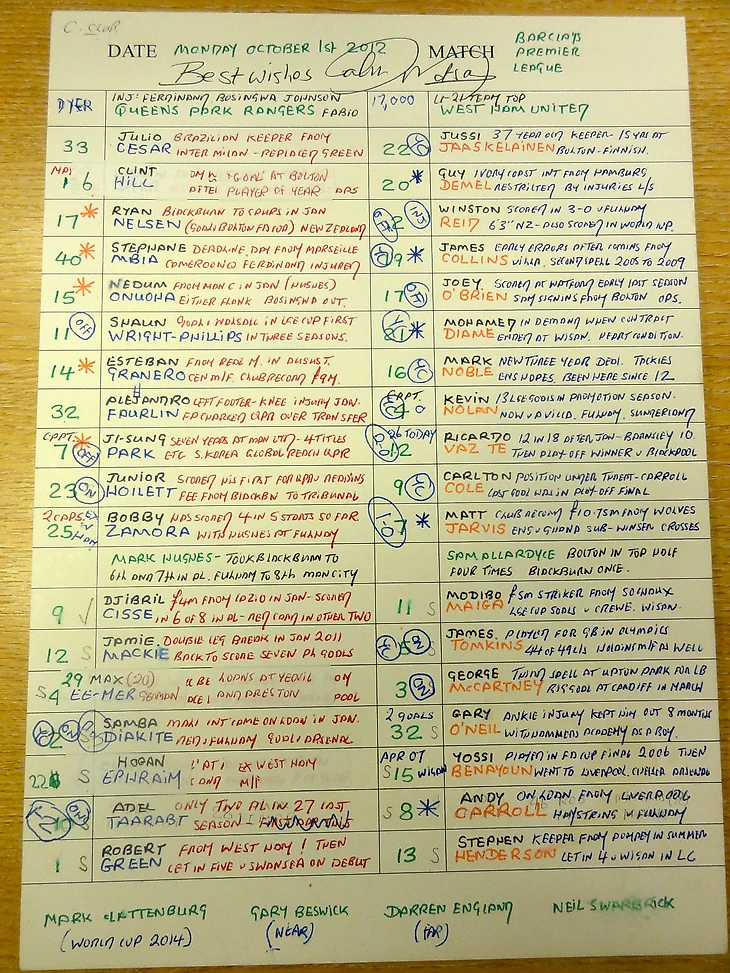 C. CLUB
DATE MONDAY OCTOBER 1st 2012 MATCH BARCLAYS
PREMIER
LEAGUE
Best wishes
DYER INJ: FERDINAND BOSINGWA JOHNSON
QUEENS PARK RANGERS FABIO
17,000 U-21 TEAM TOP
WEST HAM UNITED
33 JULIO BRAZILIAN KEEPER FROM
CESAR INTER MILAN - REPLACED GREEN
22 JUSSI 37 YEAR OLD KEEPER - 15 YRS AT
JAASKELAINEN BOLTON - FINNISH.
6 CLINT GOAL AT BOLTON
HILL AFTER PLAYER OF YEAR
20* GUY IVORY COAST INT FROM HAMBURG
DEMEL RESTRICTED BY INJURIES L/S
17* RYAN BLACKBURN TO SPURS IN JAN
NELSEN NEW ZEALAND
WINSTON SCORED IN 3-0 v FULHAM
REID 6'3" NZ - ALSO SCORED IN WORLD CUP.
40* STEPHANE DEADLINE DAY FROM MARSEILLE
MBIA CAMEROON FERDINAND INJURED
19* JAMES EARLY ERRORS AFTER COMING FROM
COLLINS VILLA. SECOND SPELL 2005 TO 2009
15* NEDUM FROM MAN C IN JAN (HUGHES)
ONUOHA EITHER FLANK BOSINGWA OUT.
17 OFF JOEY SCORED AT WATFORD EARLY LAST SEASON
O'BRIEN SAM SIGNING FROM BOLTON
11 OFF SHAUN GOAL v WALSALL IN LGE CUP FIRST
WRIGHT-PHILLIPS IN THREE SEASONS.
21* MOHAMED IN DEMAND WHEN CONTRACT
DIAME ENDED AT WIGAN. HEART CONDITION.
14* ESTEBAN FROM REAL M. IN AUGUST.
GRANERO CEN M/F. CLUB RECORD £9M.
16 MARK NEW THREE YEAR DEAL. TACKLES
NOBLE ENG HOPES. BEEN HERE SINCE 12
32 ALEJANDRO LEFT FOOTER - KNEE INJURY JAN.
FAURLIN FA CHARGED QPR OVER TRANSFER
CAPT. 4 KEVIN 13 LGE GOALS IN PROMOTION SEASON.
NOLAN NOW v VILLA. FULHAM, SUNDERLAND
CAPT* 7 OFF JI-SUNG SEVEN YEARS AT MAN UTD - 4 TITLES
PARK ETC S. KOREA GLOBAL REACH QPR
26 TODAY 12 RICARDO 12 IN 18 AFTER JAN - BARNSLEY 10
VAZ TE THEN PLAY-OFF WINNER v BLACKPOOL
23 ON JUNIOR SCORED HIS FIRST FOR QPR v READING
HOILETT FEE FROM BLACKBN TO TRIBUNAL
9 CARLTON POSITION UNDER THREAT - CARROLL
COLE LAST GOAL WAS IN PLAY-OFF FINAL
2 CAPS, EX W HAM 25 BOBBY HAS SCORED 4 IN 5 STARTS SO FAR
ZAMORA WITH HUGHES AT FULHAM
1-0 7* MATT CLUB RECORD £10.75M FROM WOLVES
JARVIS ENG v GHANA SUB - WINGER CROSSES
MARK HUGHES - TOOK BLACKBURN TO
6th AND 7th IN PL. FULHAM TO 8th MAN CITY
SAM ALLARDYCE BOLTON IN TOP HALF
FOUR TIMES BLACKBURN ONCE.
9 ✓ DJIBRIL £4M FROM LAZIO IN JAN - SCORED
CISSE IN 6 OF 8 IN PL - RED CARD IN OTHER TWO
11 S MODIBO £5M STRIKER FROM SOCHAUX
MAIGA LGE CUP GOALS v CREWE. WIGAN.
12 S JAMIE DOUBLE LEG BREAK IN JAN 2011
MACKIE BACK TO SCORE SEVEN PL GOALS
5 JAMES PLAYED FOR GB IN OLYMPICS
TOMKINS 44 OF 49 LGE HOLDING M/F AS WELL
29 MAX (20) LOANS AT YEOVIL
S4 EE-MER GERMAN AND PRESTON POOL
3 GEORGE THIRD SPELL AT UPTON PARK FOR LB
McCARTNEY BIG GOAL AT CARDIFF IN MARCH
2 SAMBA MALI INT CAME ON LOAN IN JAN.
DIAKITE RED v FULHAM GOAL v ARSENAL
2 GOALS 32 S GARY ANKLE INJURY KEPT HIM OUT 8 MONTHS
O'NEIL WITH HAMMERS ACADEMY AS A BOY.
22 S HOGAN EX WEST HAM
EPHRAIM M/F
APR 07 S 15 WIGAN YOSSI PLAYED IN FA CUP FINAL 2006 THEN
BENAYOUN WENT TO LIVERPOOL. CHELSEA ARSENAL
10 S ADEL ONLY TWO PL IN 27 LAST
TAARABT SEASON
S 8* ANDY ON LOAN FROM LIVERPOOL
CARROLL HAMSTRING v FULHAM
1 S ROBERT FROM WEST HAM! THEN
GREEN LET IN FIVE v SWANSEA ON DEBUT
13 S STEPHEN KEEPER FROM POMPEY IN SUMMER
HENDERSON LET IN 4 v WIGAN IN LC
MARK CLATTENBURG GARY BESWICK DARREN ENGLAND NEIL SWARBRICK
(WORLD CUP 2014) (NEAR) (FAR)